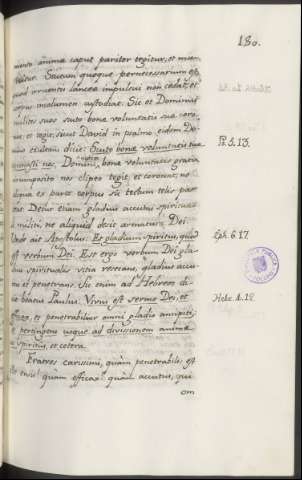 180.
mento animæ caput pariter tegitur, et mu-
nitur. Scutum quoque pernecessarium est,
quod irruentis lanceæ impulsui non cedat, et
corpus incolumen custodiat. Sic et Dominus
milites suos scuto bonæ voluntatis suæ coro-
nat, et tegit, sicut David in psalmo eidem Do-
mino evidem dicit: Scuto bonæ voluntatis tuæ
coronasti nos. Domini, bonæ voluntatis gratia
nos clipeo tegit, et coronat, ne
ex parte corpus sit tectum telis
Detur etiam gladius accutus spiritualis
militi, ne aliquid desit armaturæ Dei.
Unde ait Apostolus: Et gladium spiritus, quod
est verbum Dei. Est ergo verbum Dei gla-
dius spiritualis vitia resecans, gladius accu-
tus et penetrans. Sic enim ad Hebreos di-
cit beatus Paulus. Vivus est sermo Dei, et
efficax, et penetrabilior omni gladio ancipiti,
et pertingens usque ad divissionem animæ
et spiritus, et cetera.
Fratres carissimi, quàm penetrabilis est
ensis quàm efficax quàm accutus, qui
om
Ps. 5. 13.
Eph. 6. 17.
Hebr. 4. 12.